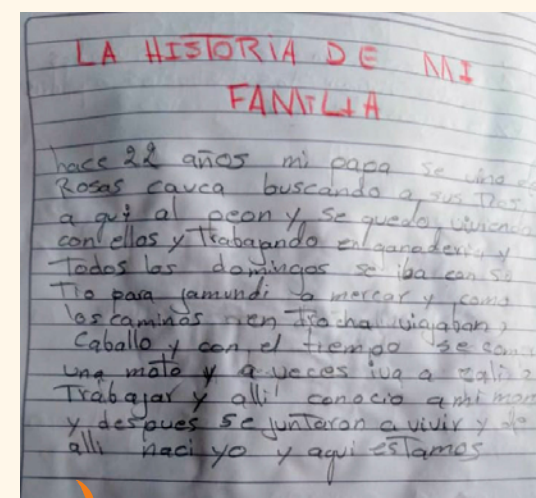 LA HISTORIA DE MI
FAMILIA
hace 22 años mi papa se vino
Rosas cauca buscando a sus Tios,
a qui al peon y se quedo viviendo
con ellos y Trabajando en ganaderia y
Todos los domingos se iba con su
Tio para jamundi a mercar y como
los caminos en Trocha viajaban
caballo y con el tiempo se
una moto y a veces iva a cali a
Trabajar y alli conocio a mi
y despues se junTaron a vivir y de
alli naci yo y aqui esTamos